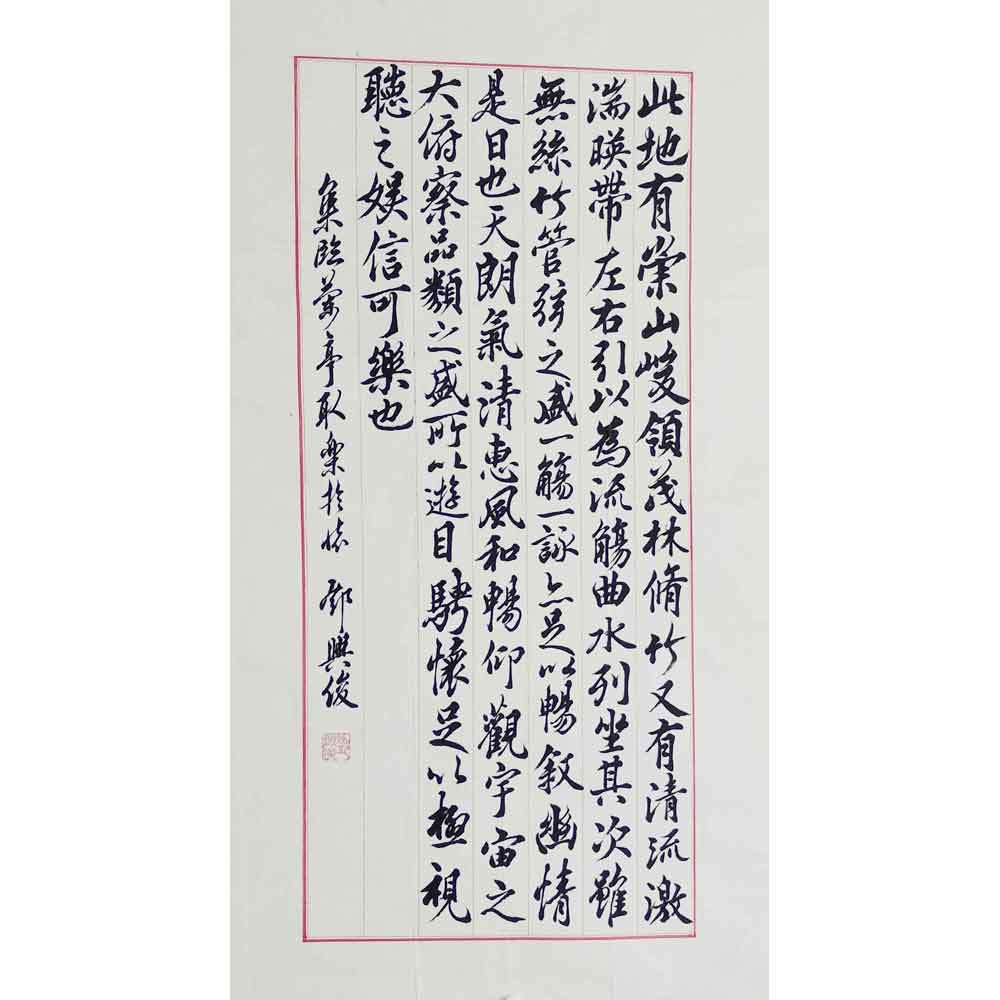 此地有崇山峻領茂林脩竹又有清流激
湍暎帶左右引以為流觴曲水列坐其次雖
無絲竹管弦之盛一觴一詠亦足以暢敘幽情
是日也天朗氣清惠風和暢仰觀宇宙之
大俯察品類之盛所以遊目騁懷足以極視
聽之娛信可樂也
集臨蘭亭取樂於懷 鄧興俊